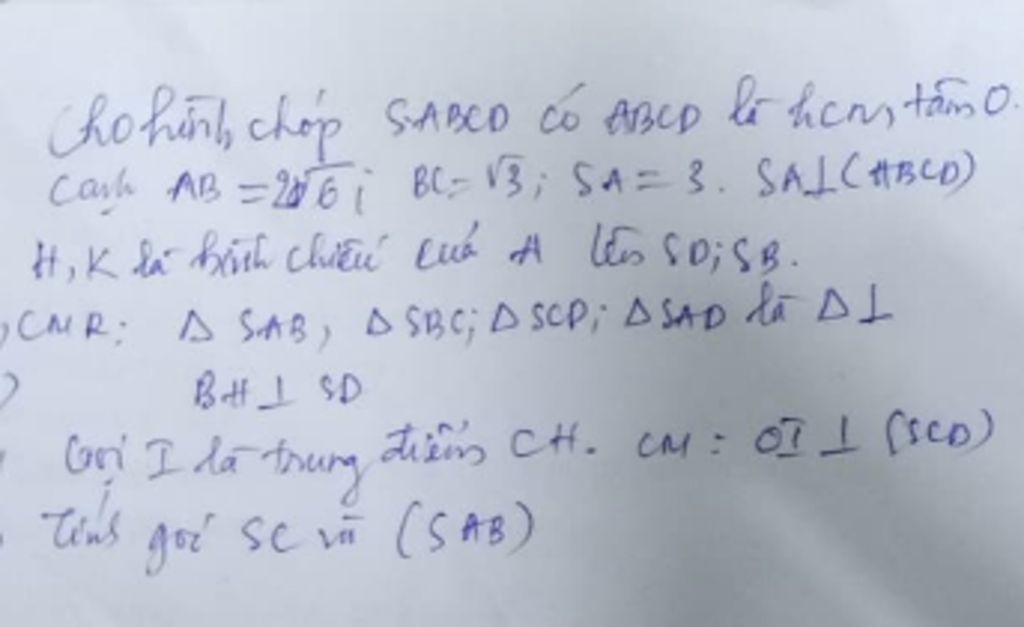 Cho hình chóp SABCD có ABCD là hcn, tâm O.
Cạnh AB = 2√6; BC = √3; SA = 3. SA⊥(ABCD)
H, K là hình chiếu của A lên SD; SB.
, CMR: Δ SAB, Δ SBC; Δ SCD; Δ SAD là Δ⊥
) BH ⊥ SD
Gọi I là trung điểm CH. CM: OI ⊥ (SCD)
Tính góc SC và (SAB)